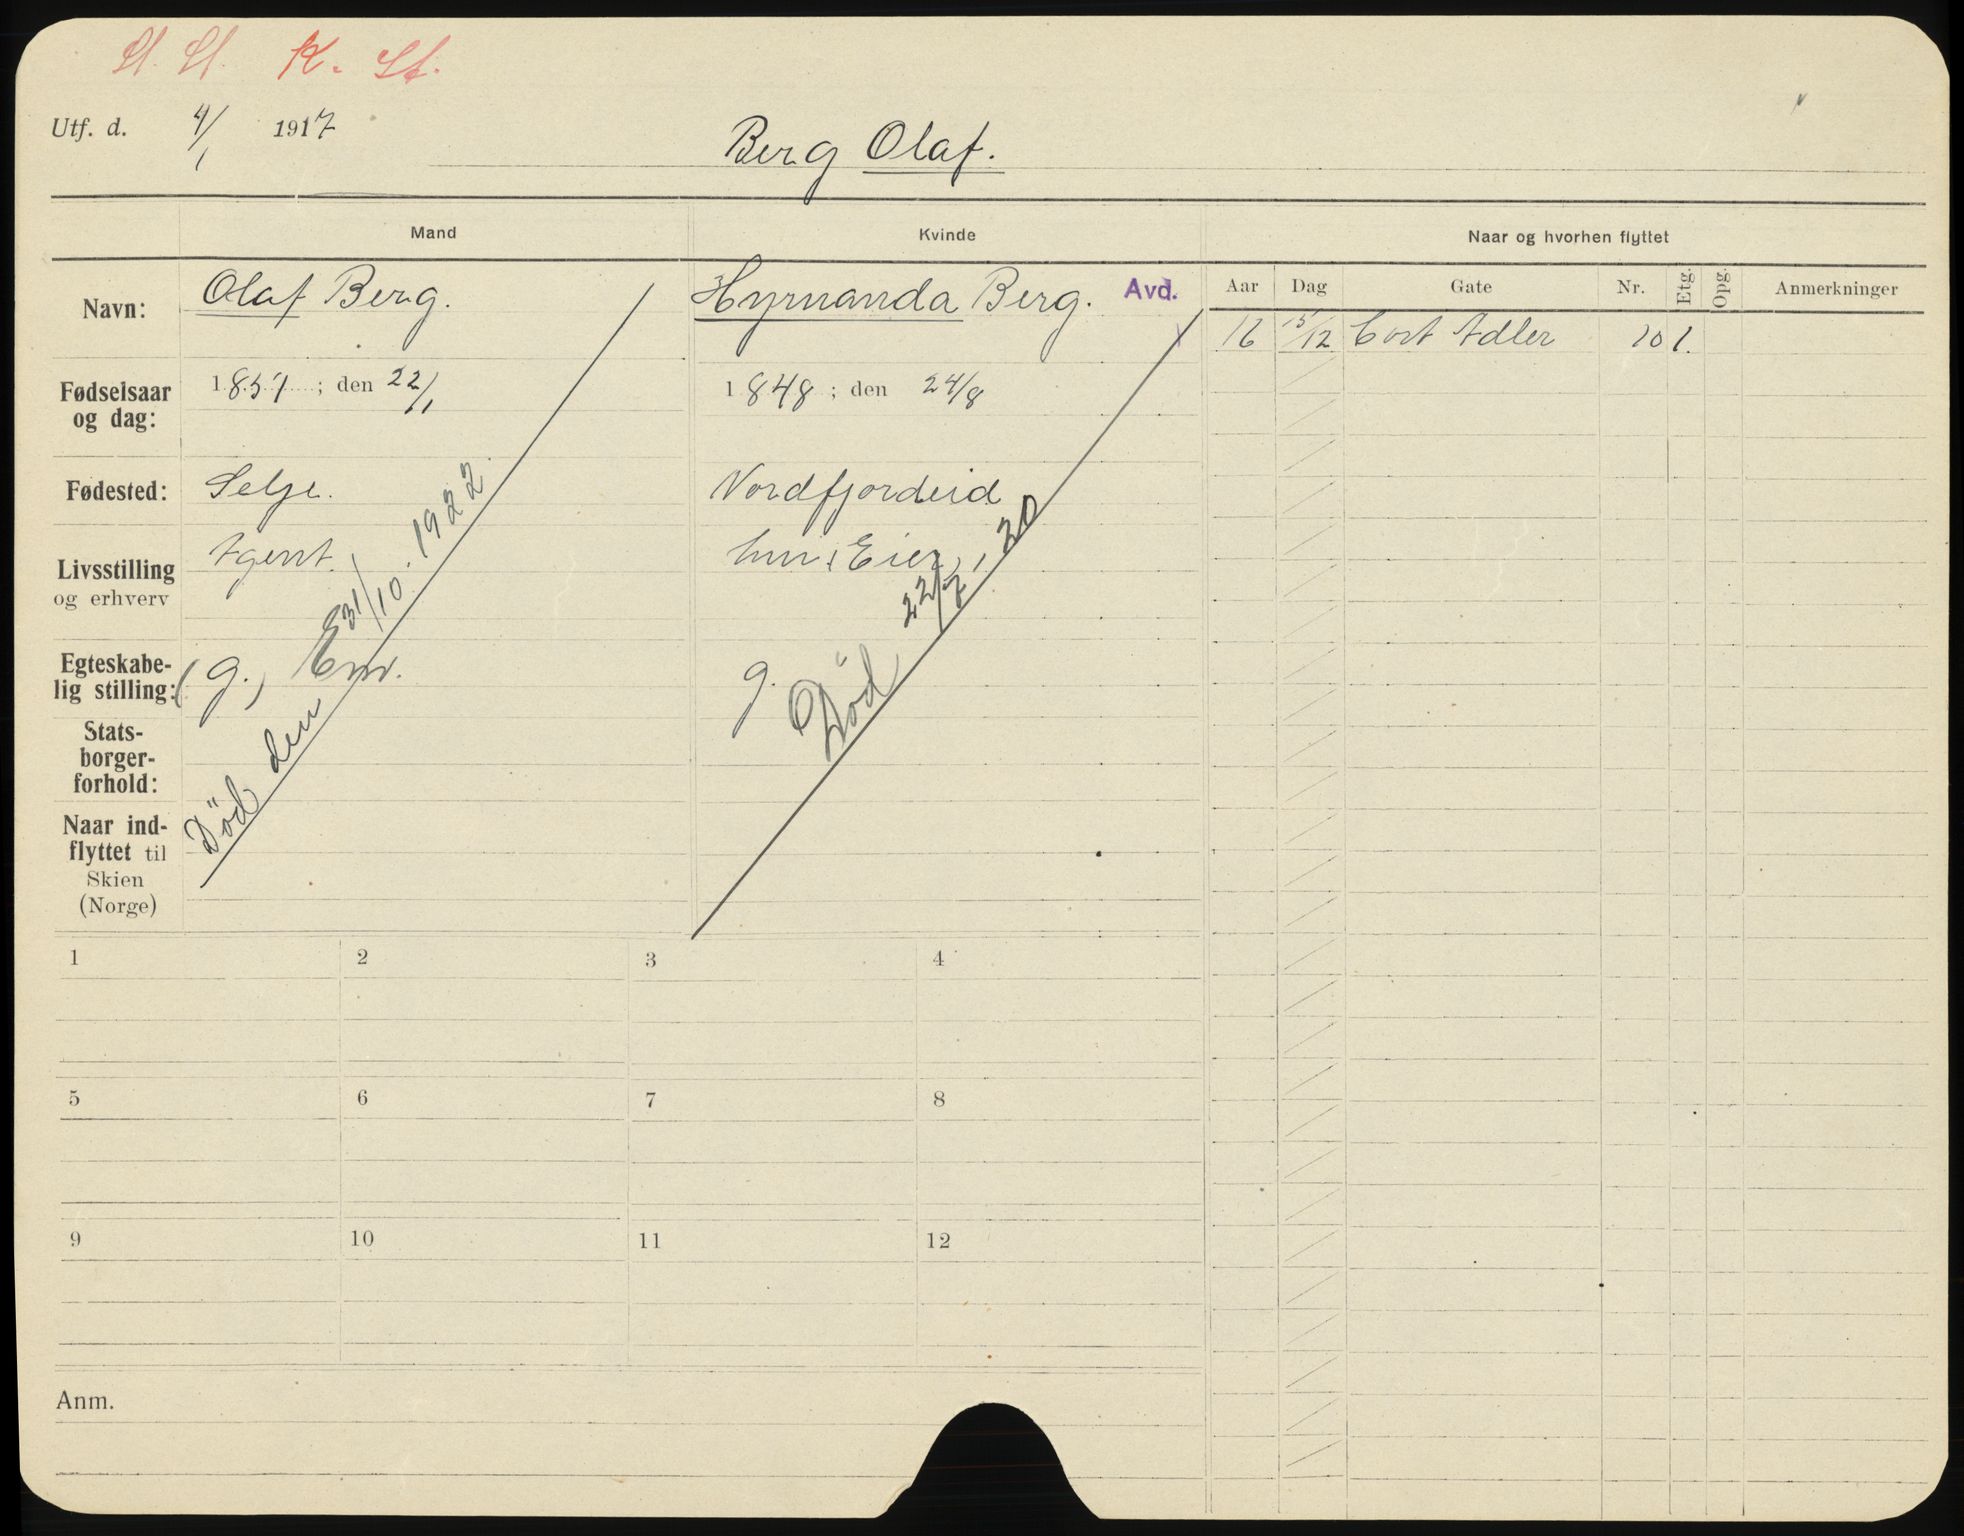 St. St. K. St.
Utf. d. 4/1 1917
Berg Olaf.
Mand Kvinde Naar og hvorhen flyttet
Navn: Olaf Berg. Hyrnanda Berg. Avd.
Aar Dag Gate Nr. Etg. Opg. Anmerkninger
16 15/12 Cort Adler 10 1.
Fødselsaar og dag: 1857; den 22/1 1848; den 24/8
Fødested: Selje. Nordfjordeid
Livsstilling og erhverv Agent. Eier
Egteskabe-
lig stilling: (g.) Em. g.
Død den 31/10. 1922.
Død 22/7, 20
Stats-
borger-
forhold:
Naar ind-
flyttet til
Skien
(Norge)
1 2 3 4
5 6 7 8
9 10 11 12
Anm.